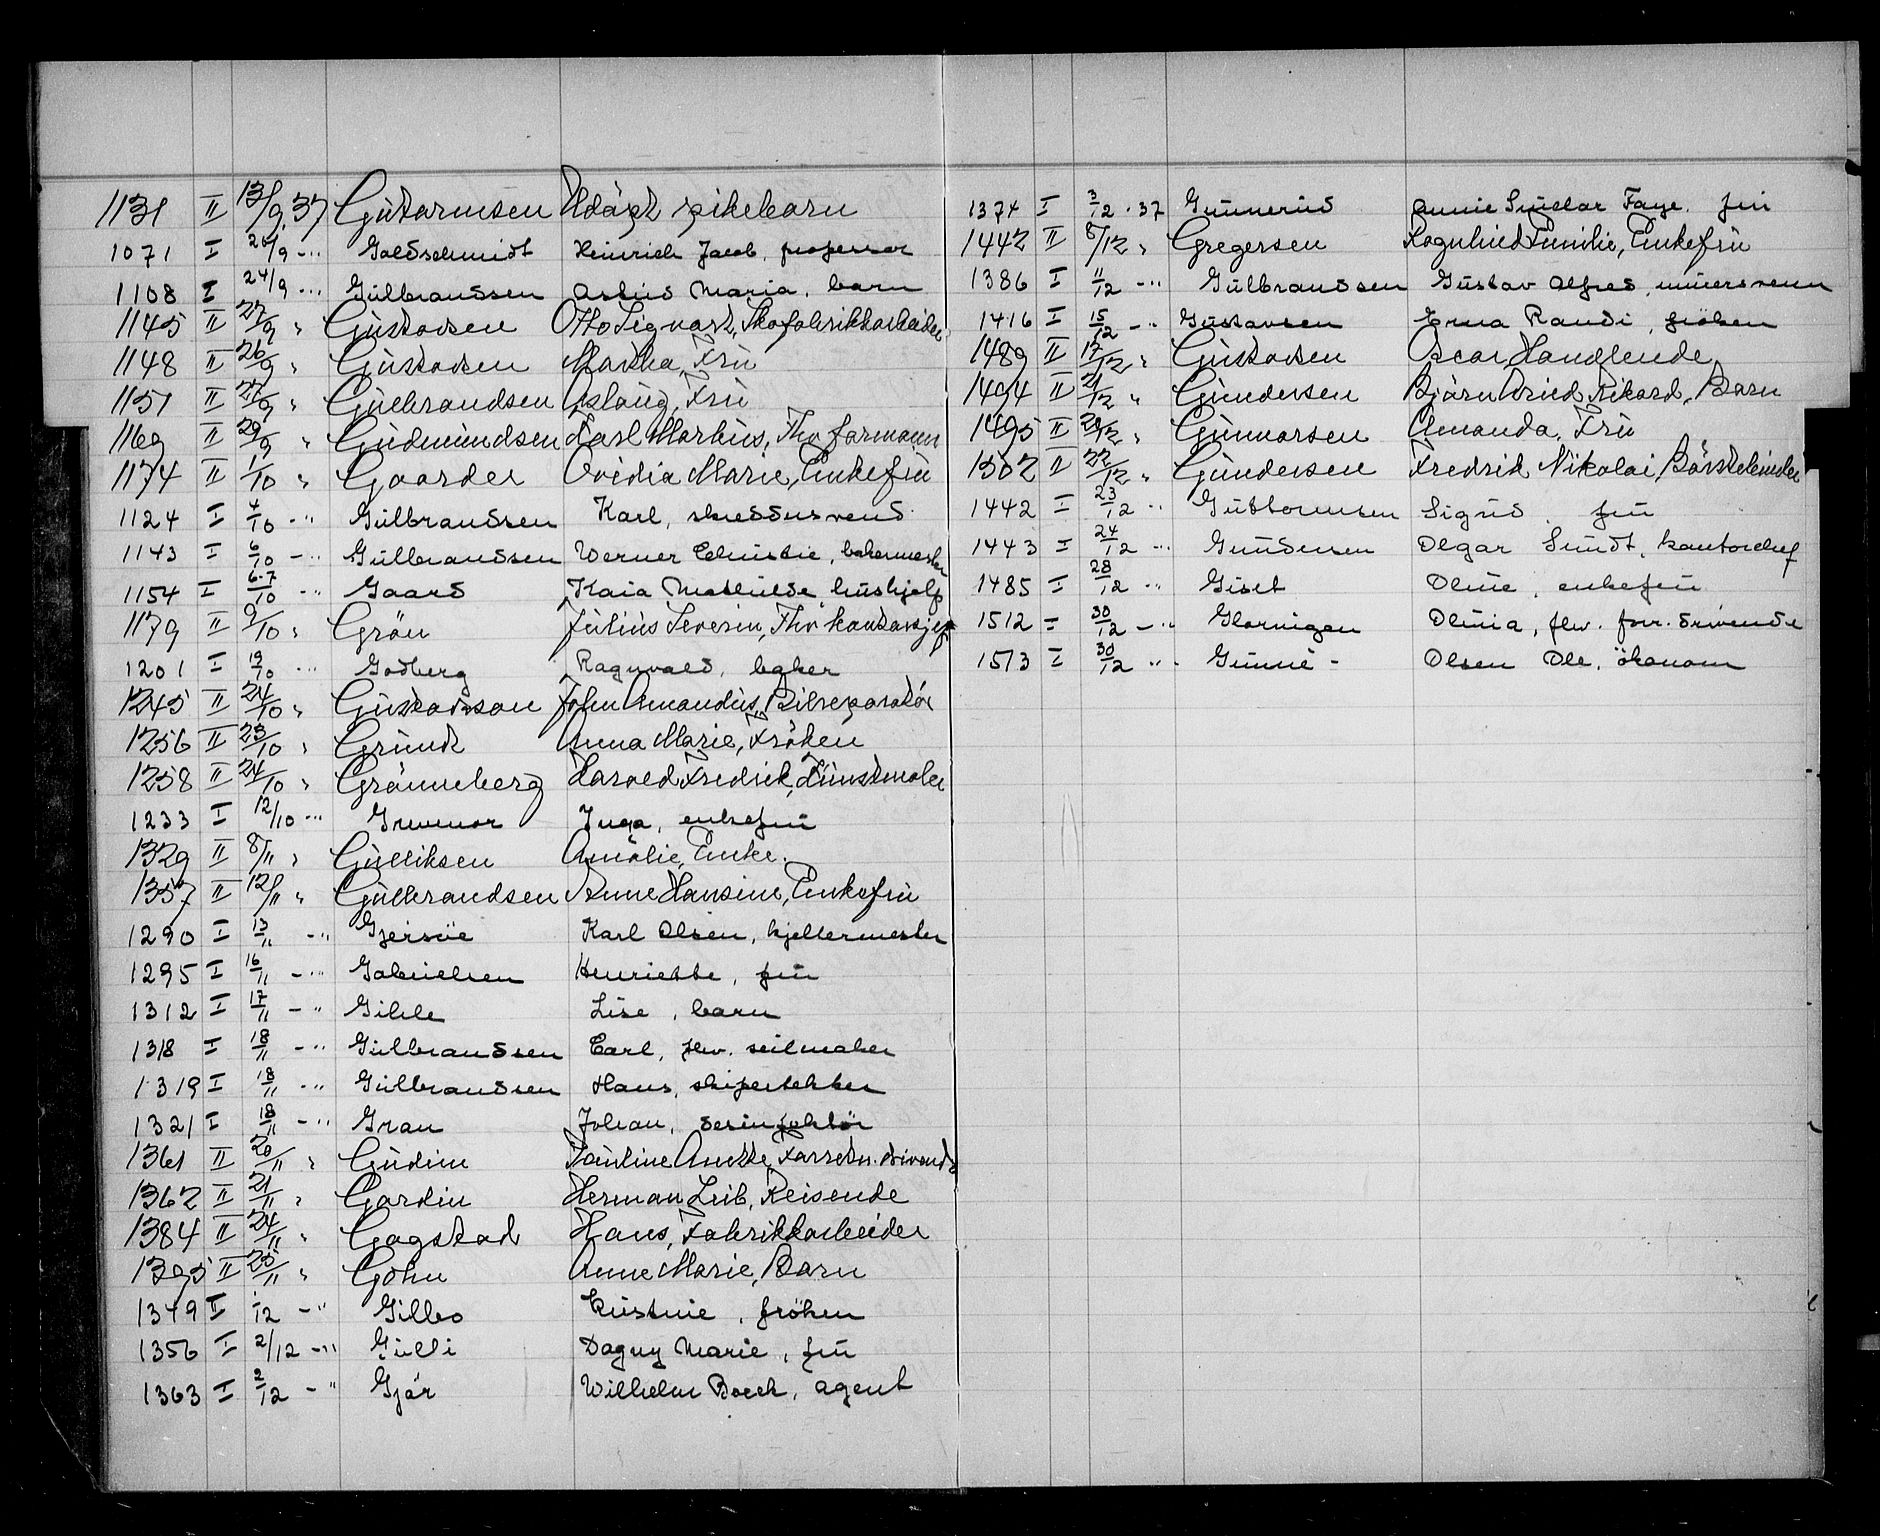 1131 II 13/9.37 Guttormsen Udöpt pikebarn
1071 I 20/9 -" Goldschmidt Heinrich Jacob, professor
1108 I 24/9 -" Gulbrandsen Astrid Maria, barn
1145 II 27/9 " Gustavsen Otto Sigvart, Skofabrikkarbeider
1148 II 26/9 " Gustavsen Martha, Fru
1151 II 27/9 " Gulbrandsen Aslaug, Fru
1169 II 29/9 " Gudmundsen Karl Markus, Fhv formann
1174 II 1/10 " Gaarder Ovidia Marie, Enkefru
1124 I 4/10 -" Gulbrandsen Karl, skreddersvend
1143 I 6/10 -" Gulbrandsen Werner Christie, bakermester
1154 I 6-7/10 -" Gaard Kaia Mathilde hushjelp
1179 II 9/10 " Grön Julius Severin, Fhv kontorsjef
1201 I 19/10 -" Godberg Ragnvald, baker
1245 II 24/10 " Gustavsson John Amandus, Bilreparatör
1256 II 23/10 " Grundt Anna Marie, Fröken
1258 II 24/10 " Grönneberg Harald Fredrik, Kunstmaler
1233 I 12/10 -" Grevenor Inga, enkefru
1329 II 8/11 " Gulliksen Amalie, Enke.
1357 II 12/11 " Gulbrandsen Anne Hansine, Enkefru
1290 I 13/11 -" Gjersöe Karl Olsen, kjellermester
1295 I 16/11 -" Gabrielsen Henriette, fru
1312 I 17/11 -" Gihle Lise, barn
1318 I 18/11 -" Gulbrandsen Carl, fhv. seilmaker
1319 I 18/11 -" Gulbrandsen Hans, skifertekker
1321 I 18/11 -" Gran Johan, desinfektör
1361 II 20/11 " Gudim Pauline Anette, Forretn. drivende
1362 II 21/11 " Gordin Herman Leib, Reisende
1384 II 24/11 " Gogstad Hans, Fabrikkarbeider
1395 II 25/11 " Göhn Anne Marie, Barn
1349 I 1/12 -" Gilbo Kristine, fröken
1356 I 2/12 -" Gulli Dagny Marie, fru
1363 I 2/12 -" Gjör Wilhelm Boeck, agent
1374 I 3/12-37 Gunnerud Annie Sindar Faye. fru
1442 II 8/12 " Gregersen Ragnhild Emilie, Enkefru
1386 I 11/12 -" Gulbrandsen Gustav Alfred, murersvenn
1416 I 15/12 -" Gustavsen Erna Randi, fröken
1489 II 17/12 " Gustavsen Oscar Handlende
1494 II 21/12 " Gundersen Björn Arild Rikard, Barn
1495 II 20/12 " Gunnarsen Amanda, Fru
1502 II 22/12 " Gundersen Fredrik Nikolai, Börstebinder
1442 I 23/12 -" Guttormsen Sigrid, fru
1443 I 24/12 -" Gundersen Olgar Sundt, kontorchef
1485 I 28/12 -" Giset Oline, enkefru
1512 I 30/12 -" Glorvigen Olivia, fhv. forr. drivende
1513 I 30/12 -" Gunne - Olsen Ole, ökonom